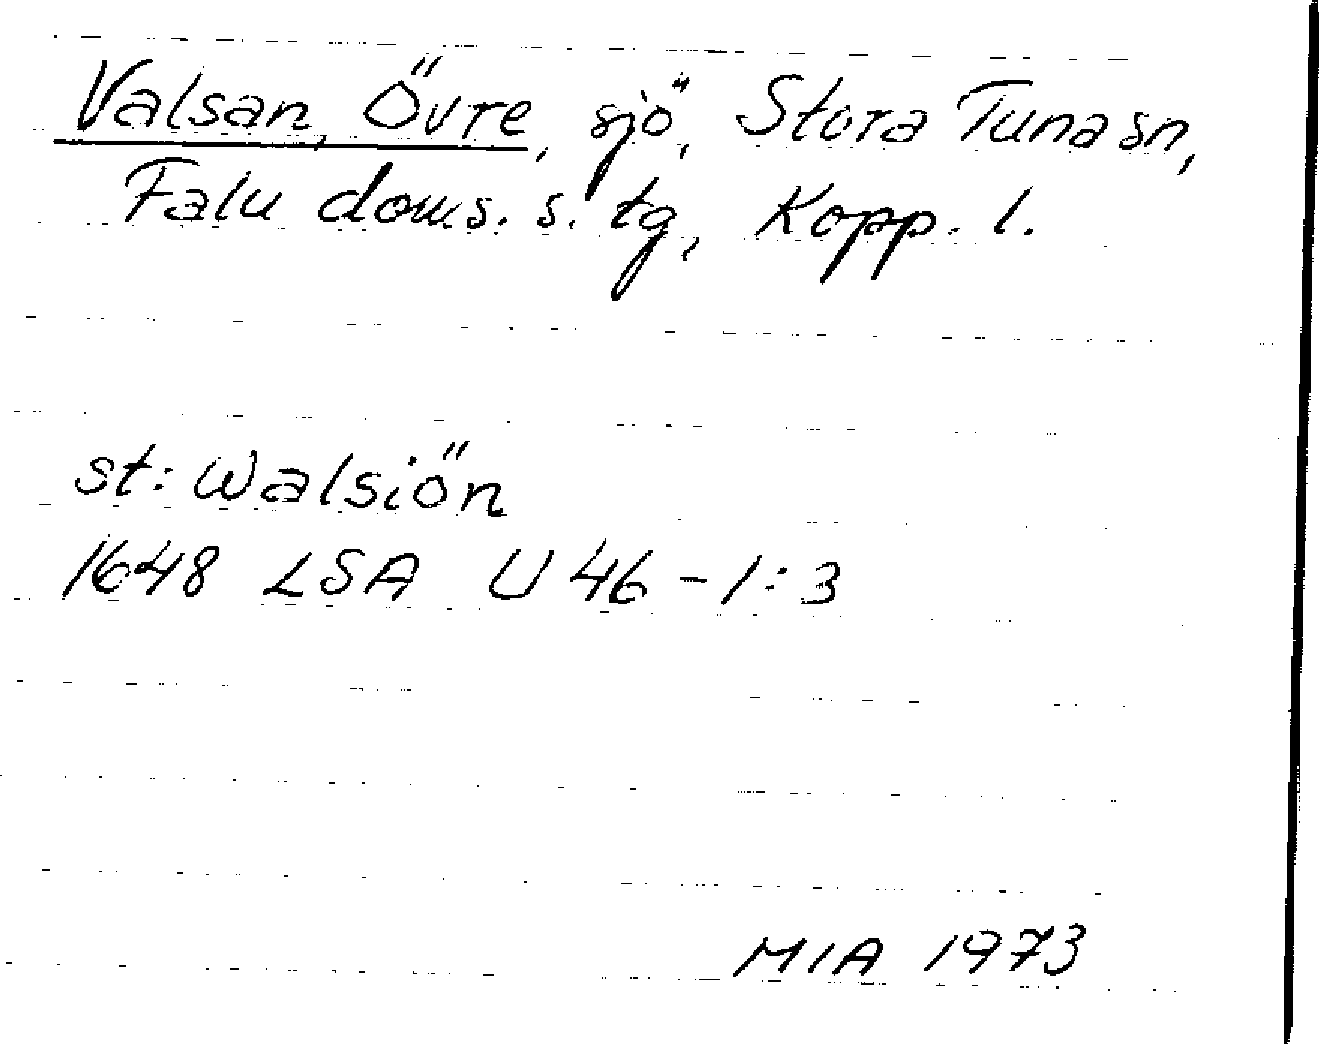 Valsan, Övre, sjö, Stora Tuna sn,
Falu doms. s. tg, Kopp. l.
st: Walsiön
1648 LSA U 46-1:3
MIA 1973